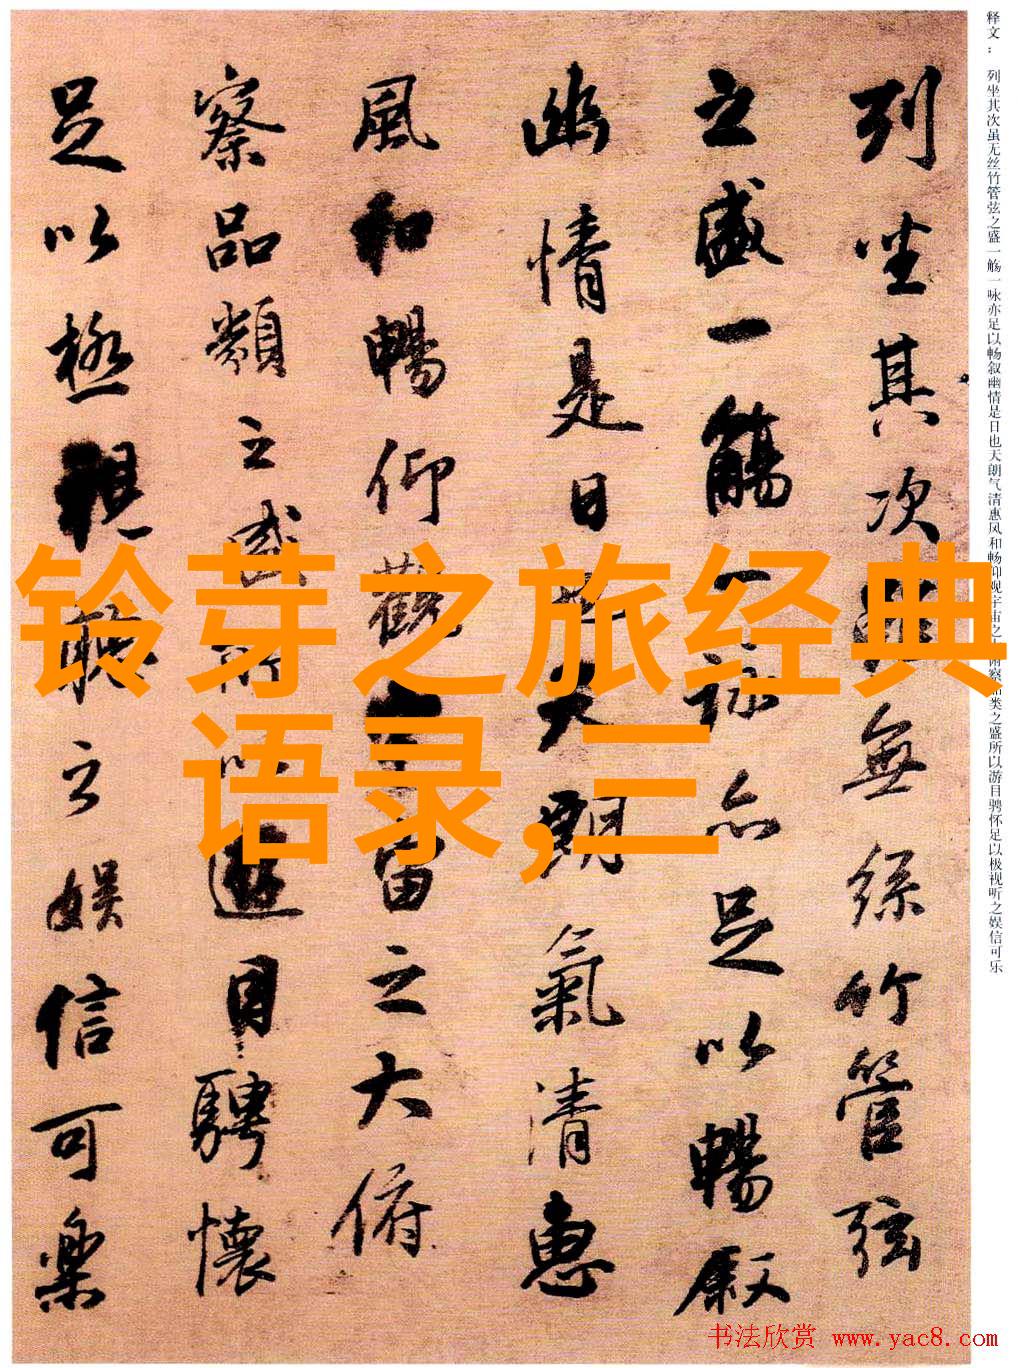 列坐其次雖無絲竹管弦
之盛一觴一詠亦足以暢叙
幽情是日也天朗氣清惠
風和暢仰觀宇宙之大俯
察品類之盛所以遊目騁懷
足以極視聽之娱信可樂
释文：列坐其次虽无丝竹管弦之盛一觞一咏亦足以畅叙幽情是日也天朗气清惠风和畅仰观宇宙之大俯察品类之盛所以游目骋怀足以极视听之娱信可乐
铃芽之旅经典
语录,三
书法欣赏 www.yac8.com